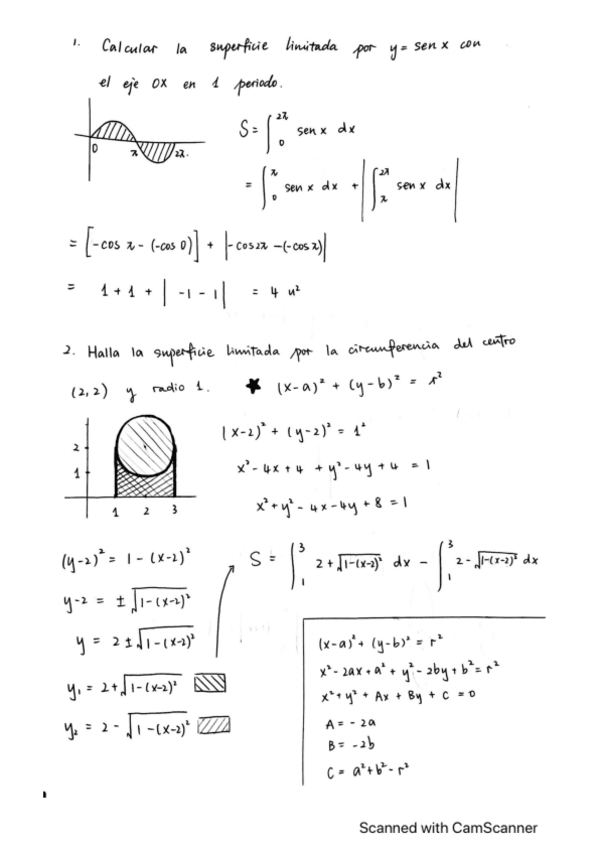 1. Calcular la superficie limitada por y = sen x con
el eje OX en 1 periodo.
0 π 2π.
S = ∫₀^2π sen x dx
= ∫₀^π sen x dx + |∫_π^2π sen x dx|
= [-cos π - (-cos 0)] + |-cos 2π - (-cos π)|
= 1 + 1 + | -1 - 1 | = 4 u²
2. Halla la superficie limitada por la circunferencia del centro
(2,2) y radio 1. ★ (x-a)² + (y-b)² = r²
2
1
1 2 3
(x-2)² + (y-2)² = 1²
x² - 4x + 4 + y² - 4y + 4 = 1
x² + y² - 4x - 4y + 8 = 1
(y-2)² = 1 - (x-2)²
y-2 = ± √(1-(x-2)²)
y = 2 ± √(1-(x-2)²)
y₁ = 2 + √(1-(x-2)²)
y₂ = 2 - √(1-(x-2)²)
S = ∫₁³ 2 + √(1-(x-2)²) dx - ∫₁³ 2 - √(1-(x-2)²) dx
(x-a)² + (y-b)² = r²
x² - 2ax + a² + y² - 2by + b² = r²
x² + y² + Ax + By + C = 0
A = -2a
B = -2b
C = a² + b² - r²
Scanned with CamScanner